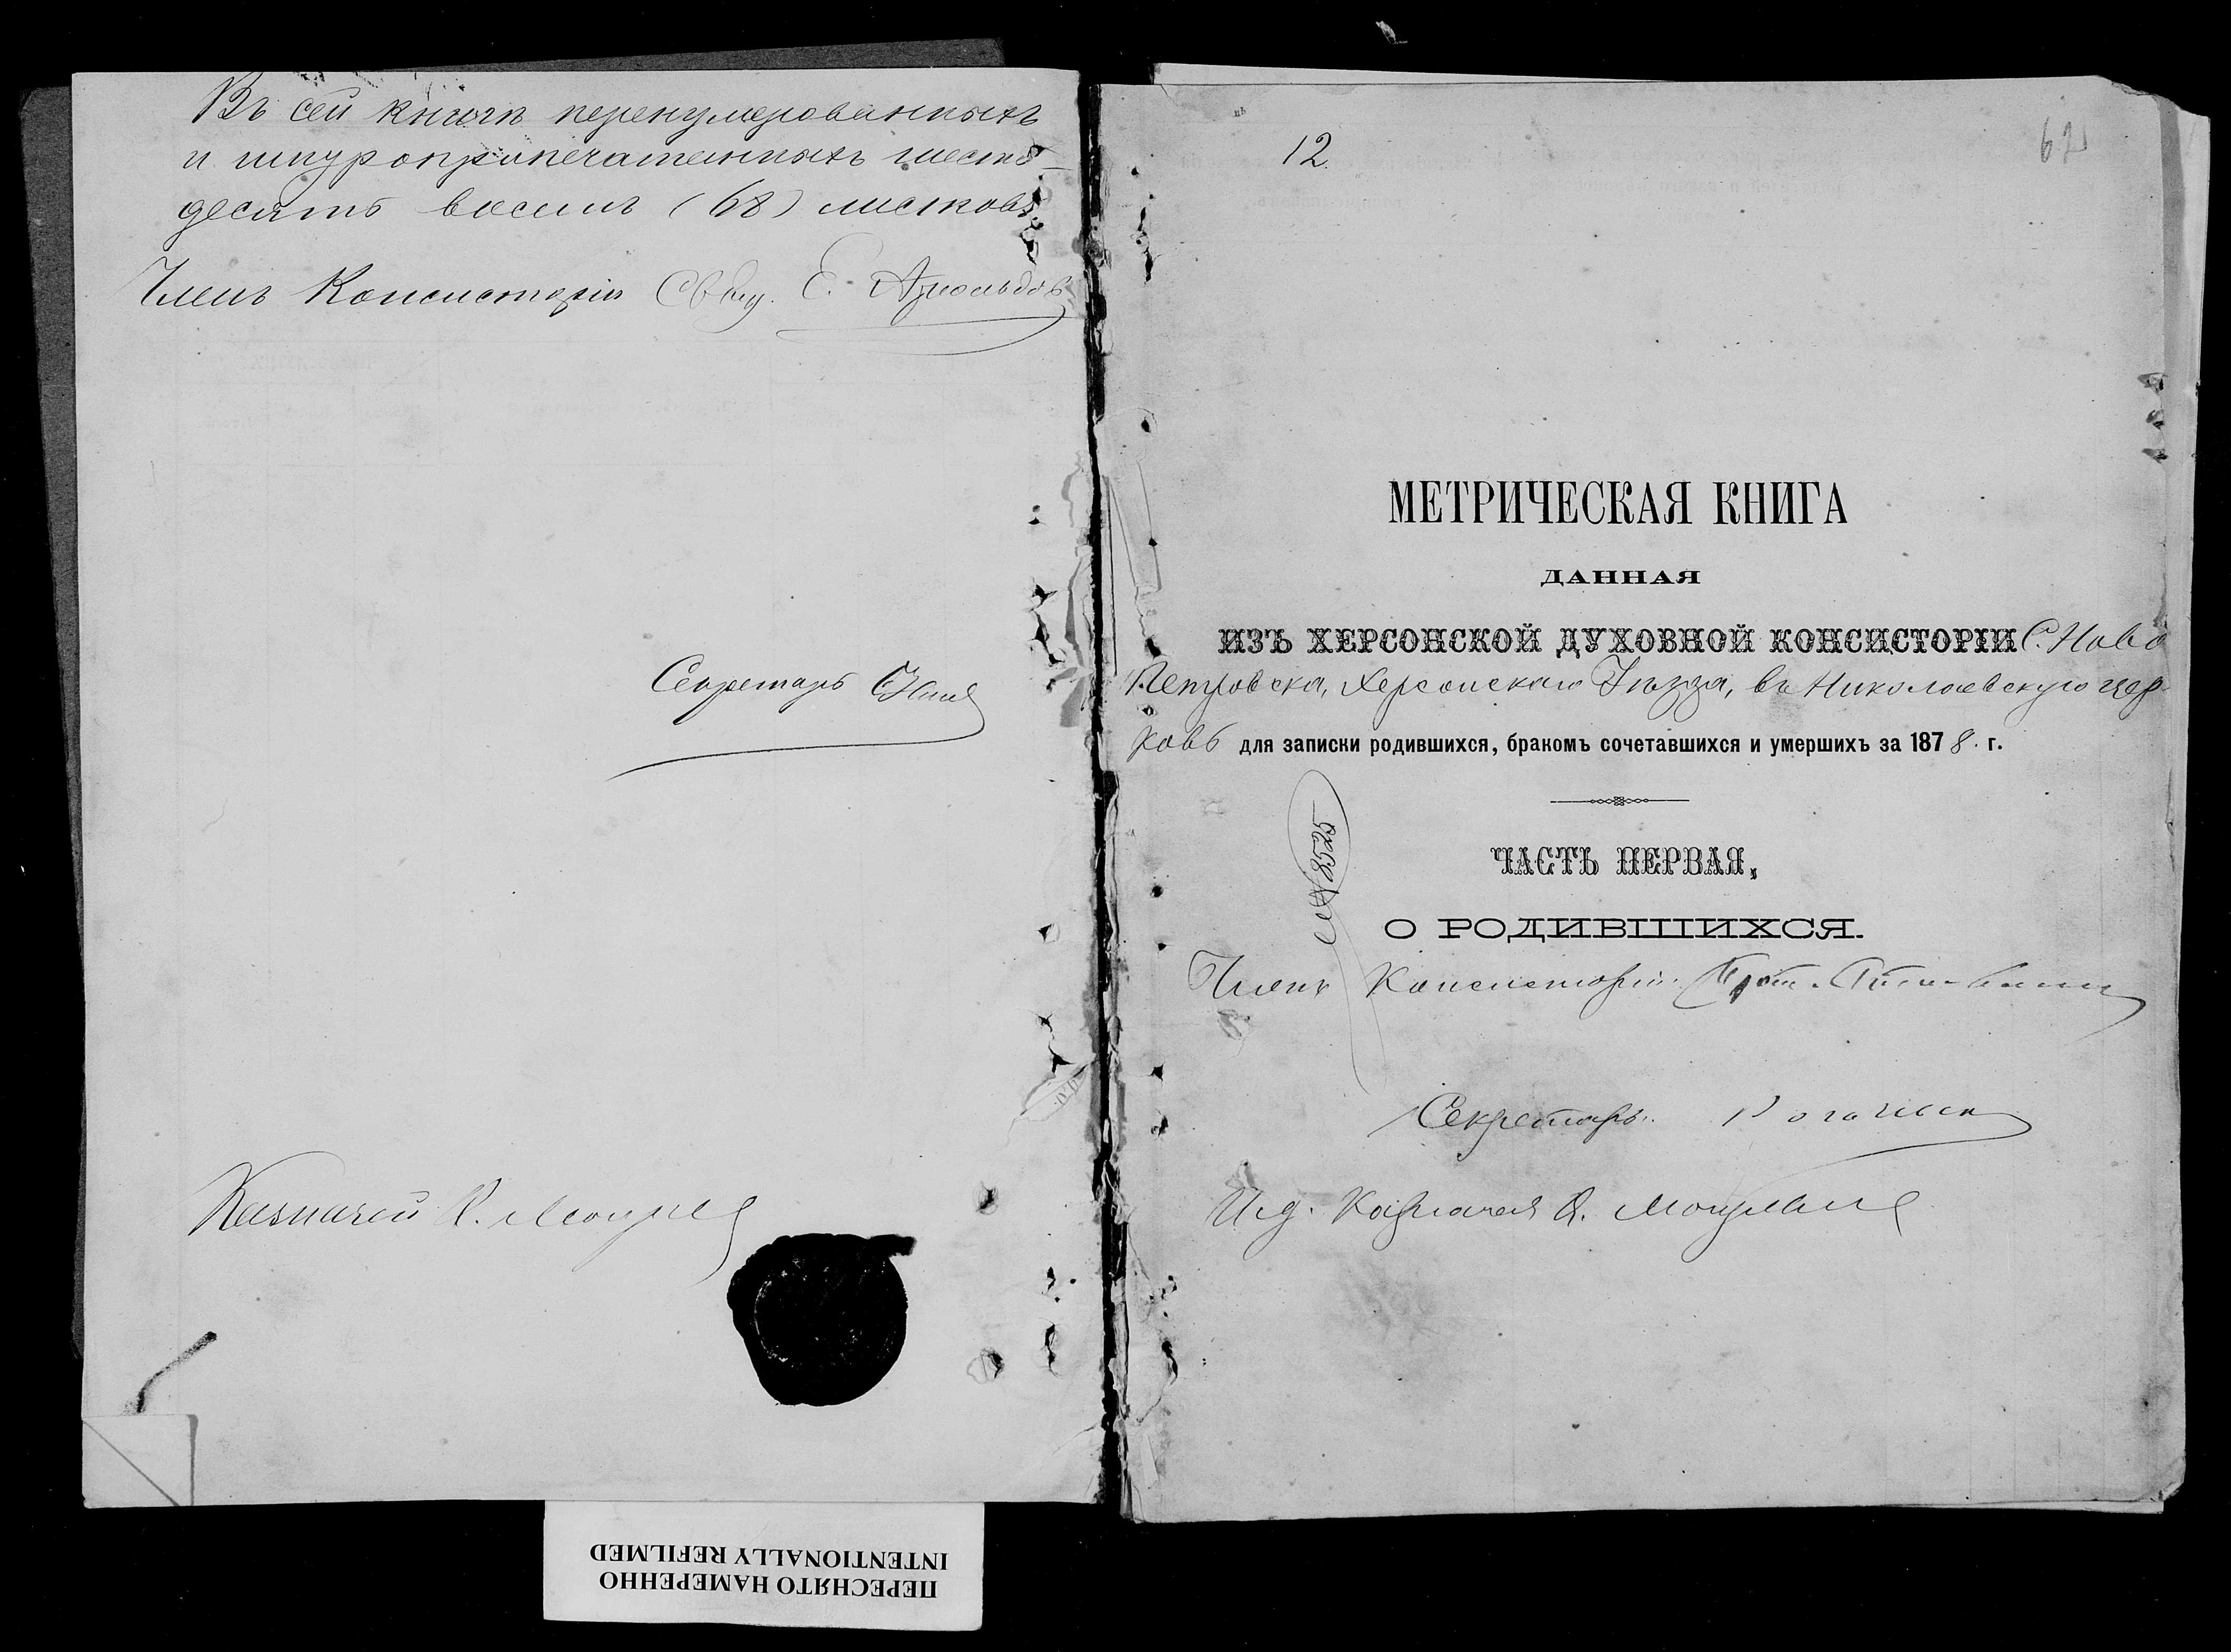 Въ сей книгѣ перенумерованныхъ
и шнуроприпечатанныхъ шесть-
десятъ восемь (68) листовъ
Членъ Консисторіи Свящ. Е. Арнольдовъ
Секретарь
Казначей
12.
62
МЕТРИЧЕСКАЯ КНИГА
ДАННАЯ
ИЗЪ ХЕРСОНСКОЙ ДУХОВНОЙ КОНСИСТОРІИ С. Ново
Петровска, Херсонскаго Уѣзда, въ Николаевскую цер-
ковь для записки родившихся, бракомъ сочетавшихся и умершихъ за 1878. г.
№ 8525
ЧАСТЬ ПЕРВАЯ,
О РОДИВШИХСЯ.
Членъ Консисторіи Прот.
Секретарь
И. д. Казначея
ПЕРЕСНЯТО НАМЕРЕННО
INTENTIONALLY REFILMED